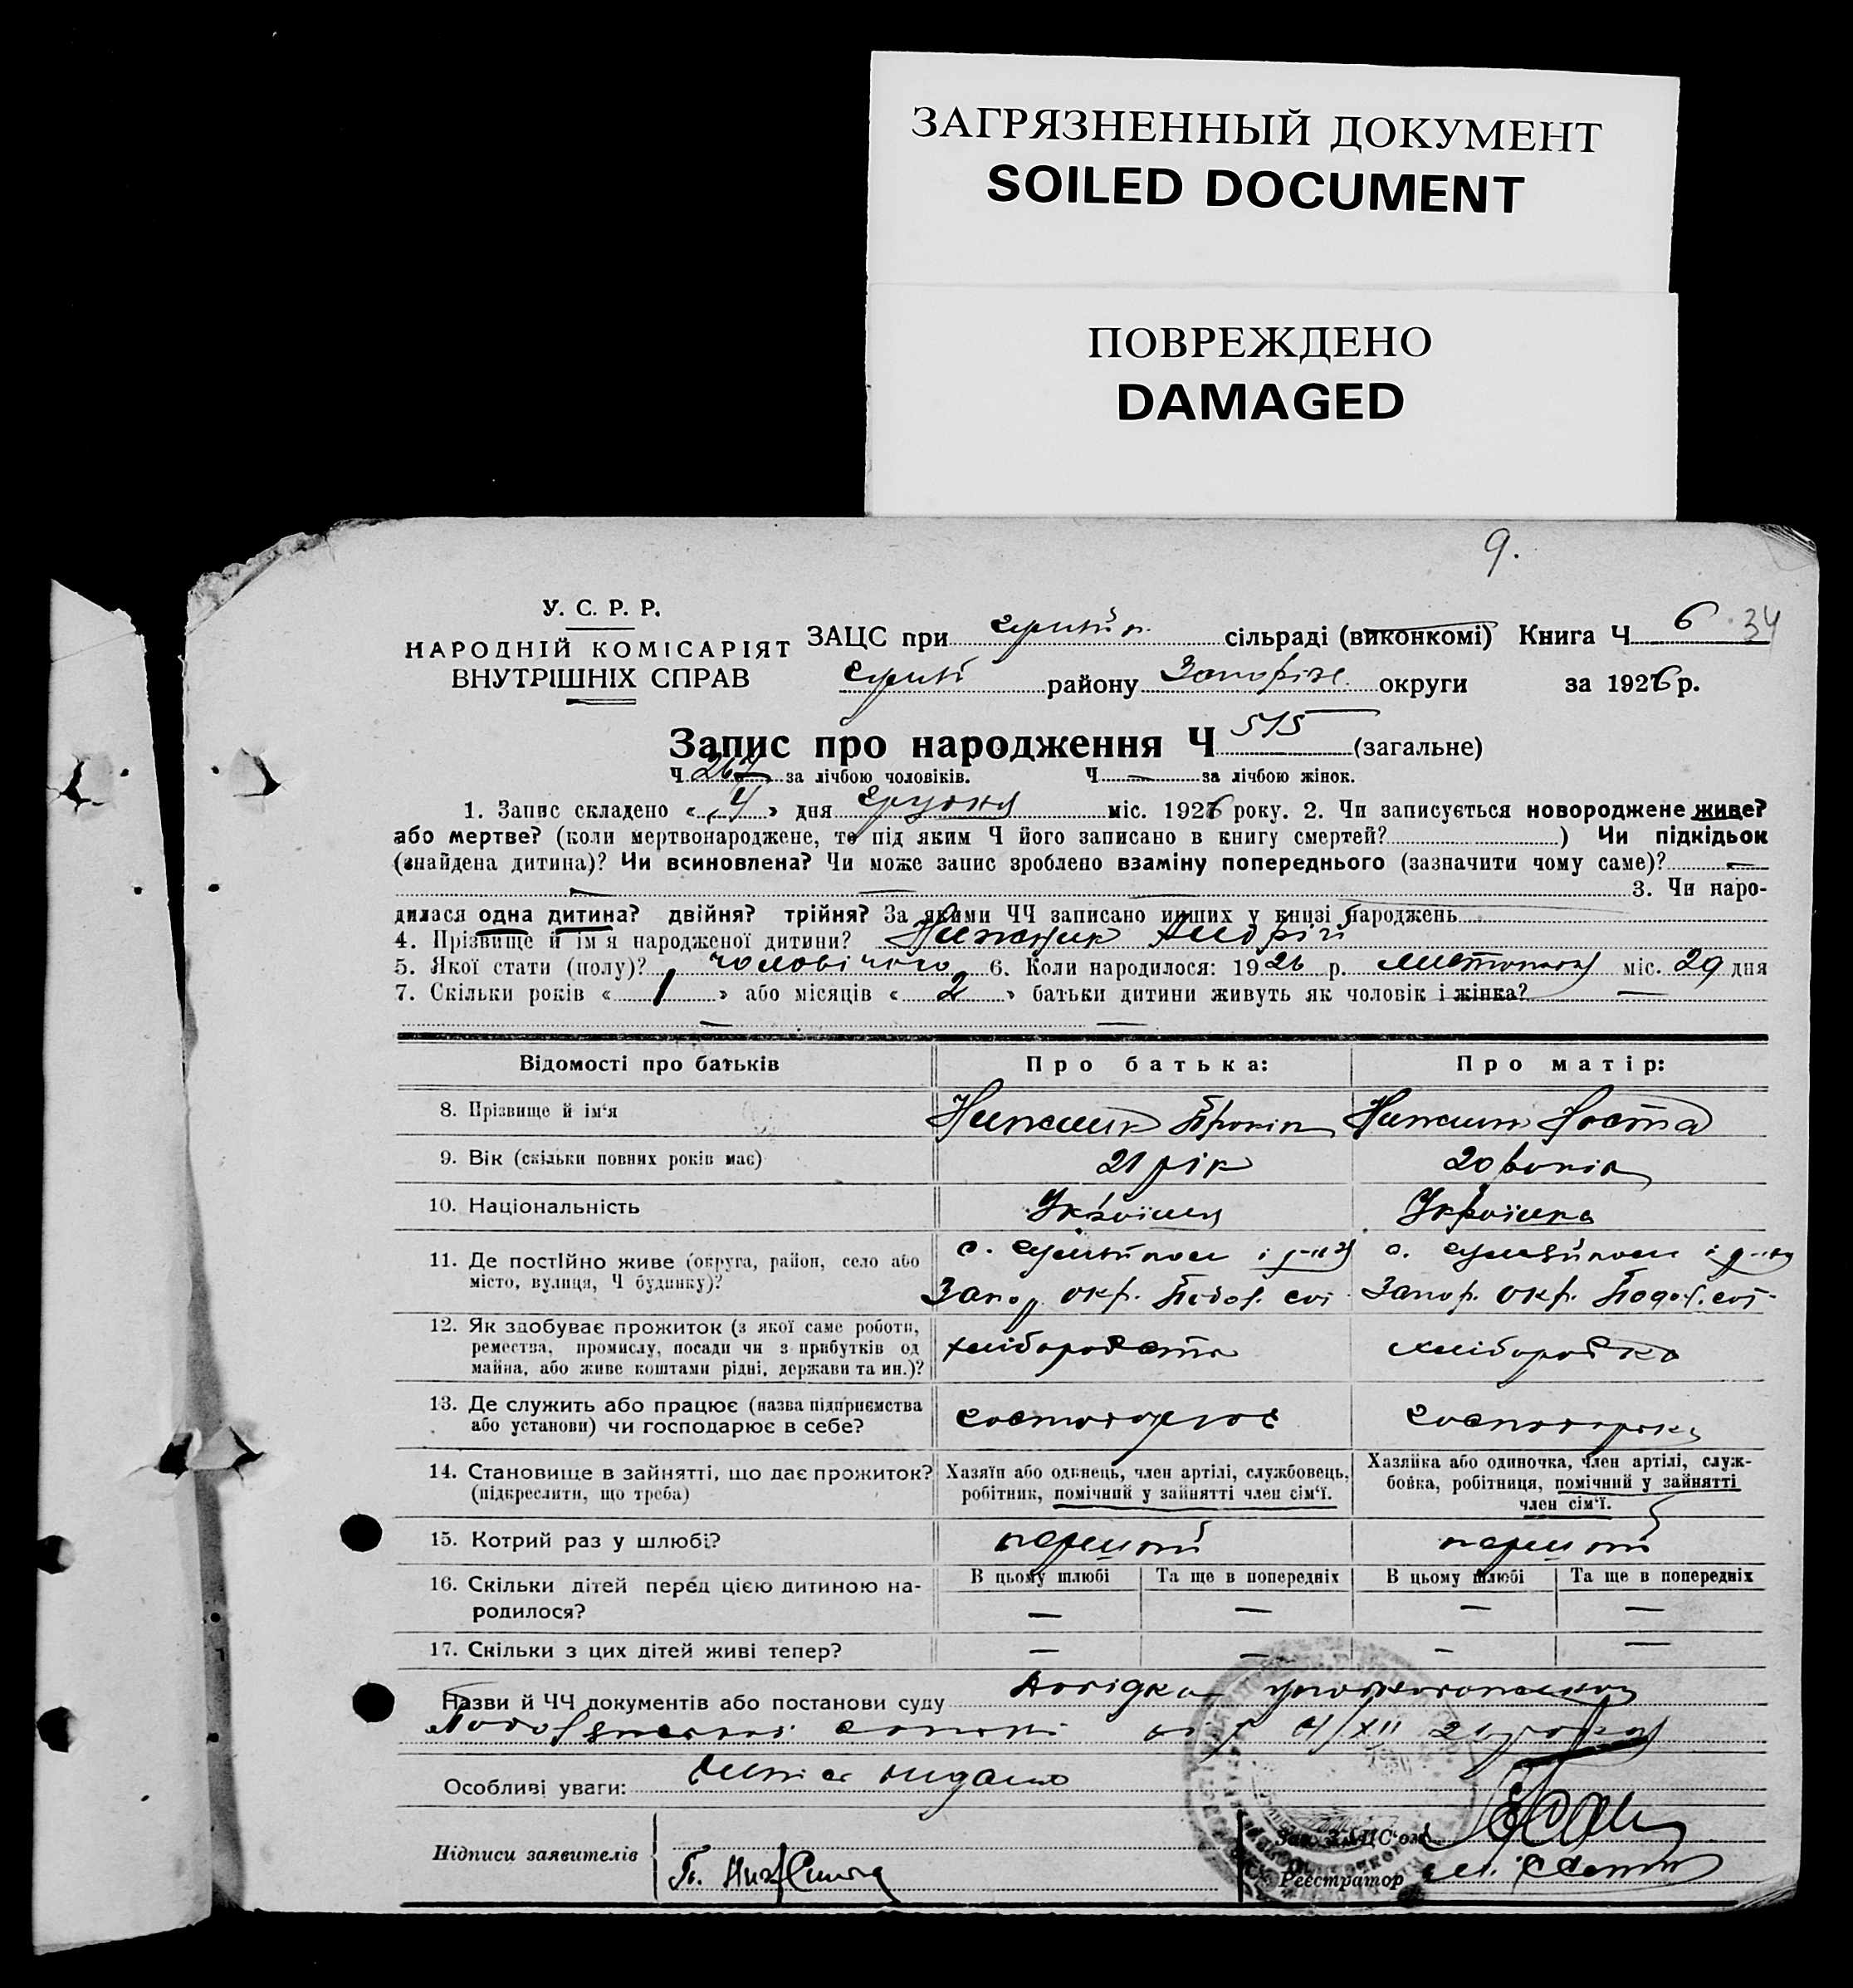 ЗАГРЯЗНЕННЫЙ ДОКУМЕНТ
SOILED DOCUMENT
ПОВРЕЖДЕНО
DAMAGED
9.
У. С. Р. Р.
НАРОДНІЙ КОМІСАРІЯТ
ВНУТРІШНІХ СПРАВ
ЗАЦС при сільраді (виконкомі) Книга Ч 6 34
району Запоріж. округи за 1926 р.
Запис про народження Ч 515 (загальне)
Ч 267 за лічбою чоловіків. Ч — за лічбою жінок.
1. Запис складено « 4 » дня грудня міс. 1926 року. 2. Чи записується новороджене живе?
або мертве? (коли мертвонароджене, то під яким Ч його записано в книгу смертей? ) Чи підкідьок
(знайдена дитина)? Чи всиновлена? Чи може запис зроблено взаміну попереднього (зазначити чому саме)? —
3. Чи наро-
дилася одна дитина? двійня? трійня? За якими ЧЧ записано инших у книзі народжень
4. Прізвище й ім'я народженої дитини? Нижник Андрій
5. Якої стати (полу)? чоловічого 6. Коли народилося: 1926 р. листопада міс. 29 дня
7. Скільки років « 1 » або місяців « 2 » батьки дитини живуть як чоловік і жінка? —
Відомості про батьків Про батька: Про матір:
8. Прізвище й ім'я Нижник Прокіп Нижник Настя
9. Вік (скільки повних років має) 21 рік 20 років
10. Національність Українець Українка
11. Де постійно живе (округа, район, село або
місто, вулиця, Ч будинку)? Запор. окр. Запор. окр.
12. Як здобуває прожиток (з якої саме роботи,
ремества, промислу, посади чи з прибутків од
майна, або живе коштами рідні, держави та ин.)? хліборобство хліборобка
13. Де служить або працює (назва підприємства
або установи) чи господарює в себе? господарює
14. Становище в зайнятті, що дає прожиток?
(підкреслити, що треба)
Хазяїн або одинець, член артілі, службовець,
робітник, помічний у зайнятті член сім'ї.
Хазяйка або одиночка, член артілі, служ-
бовка, робітниця, помічний у зайнятті
член сім'ї.
15. Котрий раз у шлюбі? перший перший
16. Скільки дітей перед цією дитиною на-
родилося?
В цьому шлюбі Та ще в попередніх В цьому шлюбі Та ще в попередніх
— — — —
17. Скільки з цих дітей живі тепер? — — — —
Назви й ЧЧ документів або постанови суду Довідка
Особливі уваги: видано
Підписи заявителів
П. Нижник
Зав. ЗАЦС'ом
Реєстратор